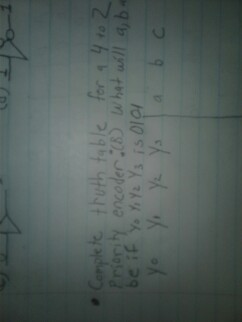 • Complete truth table for a 4 to 2
Priority encoder. (8) what will a, b
be if Y0 Y1 Y2 Y3 is 0101
Y0 Y1 Y2 Y3 a b c